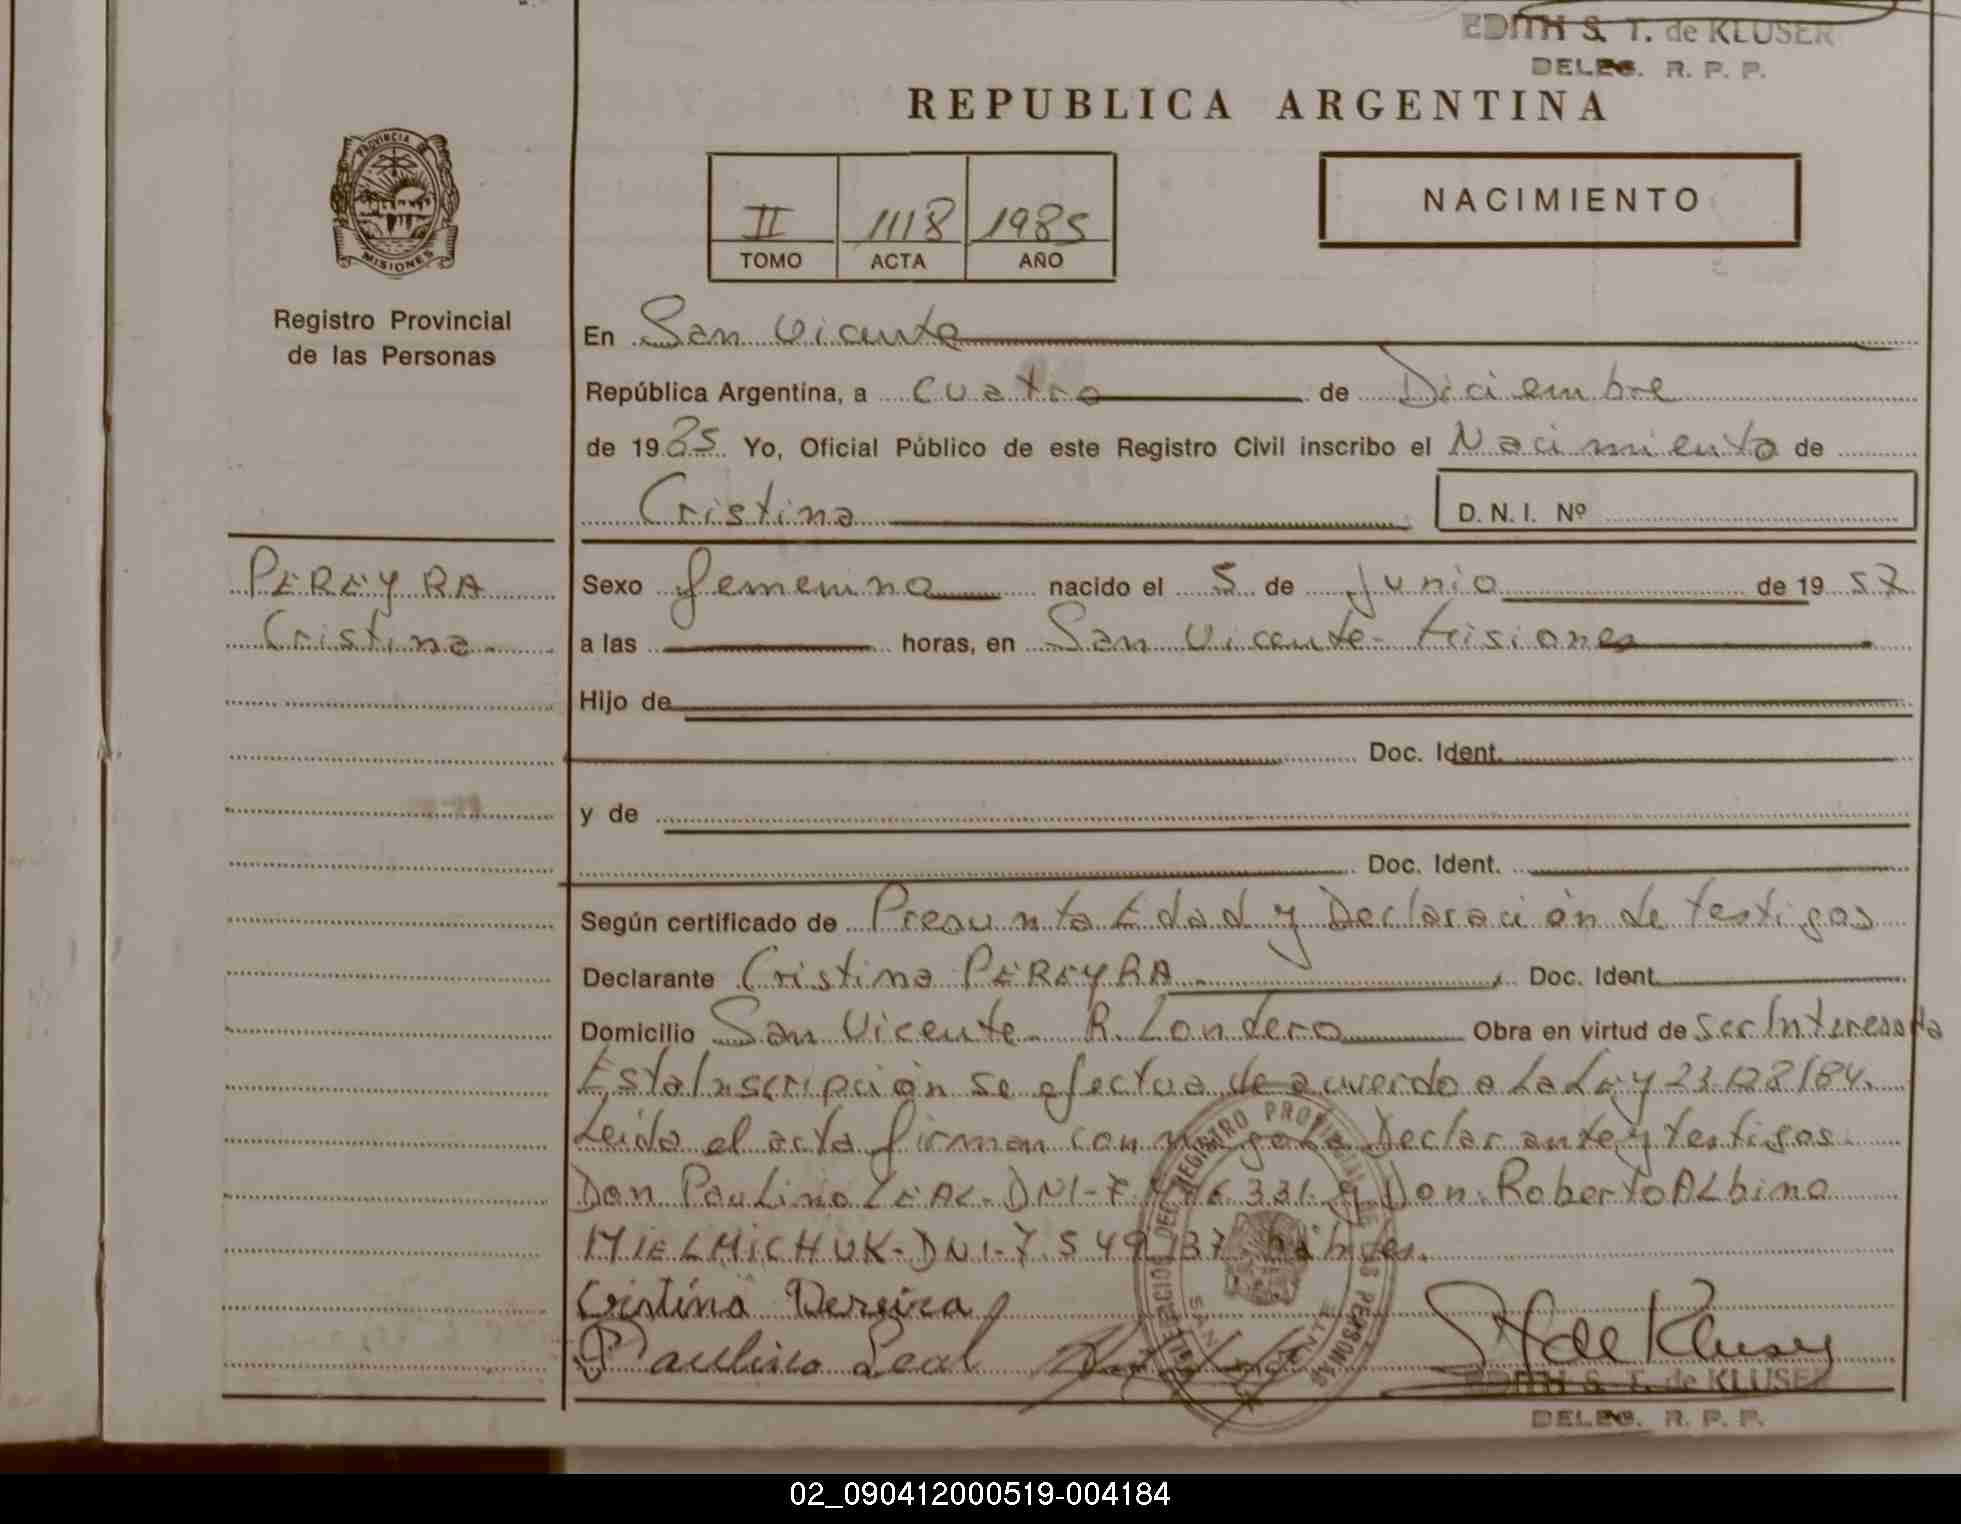 EDITH S. T. de KLUSER
DELEG. R. P. P.
REPUBLICA ARGENTINA
PROVINCIA DE
MISIONES
II 1118 1985
TOMO ACTA AÑO
NACIMIENTO
Registro Provincial
de las Personas
En San Vicente
República Argentina, a cuatro de Diciembre
de 1985 Yo, Oficial Público de este Registro Civil inscribo el Nacimiento de
Cristina D. N. I. Nº
PEREYRA
Cristina.
Sexo femenino nacido el 5 de Junio de 1957
a las horas, en San Vicente - Misiones
Hijo de
Doc. Ident.
y de
Doc. Ident.
Según certificado de Presunta Edad y Declaración de testigos
Declarante Cristina PEREYRA Doc. Ident.
Domicilio San Vicente R. Londero Obra en virtud de ser Interesada
Esta Inscripción se efectua de acuerdo a La Ley 23.128/84.
Leida el acta firman con migo la Declarante y testigos
Don Paulino LEAL - DNI - 7. 331 y Don Roberto ALbino
MIELMICHUK - DNI - 7.549.137 hábiles.
Cristina Pereira
Paulino Leal
S T de Kluser
EDITH S. T. de KLUSER
DELEG. R. P. P.
REGISTRO PROVINCIAL DE LAS PERSONAS
SAN VICENTE
02_090412000519-004184